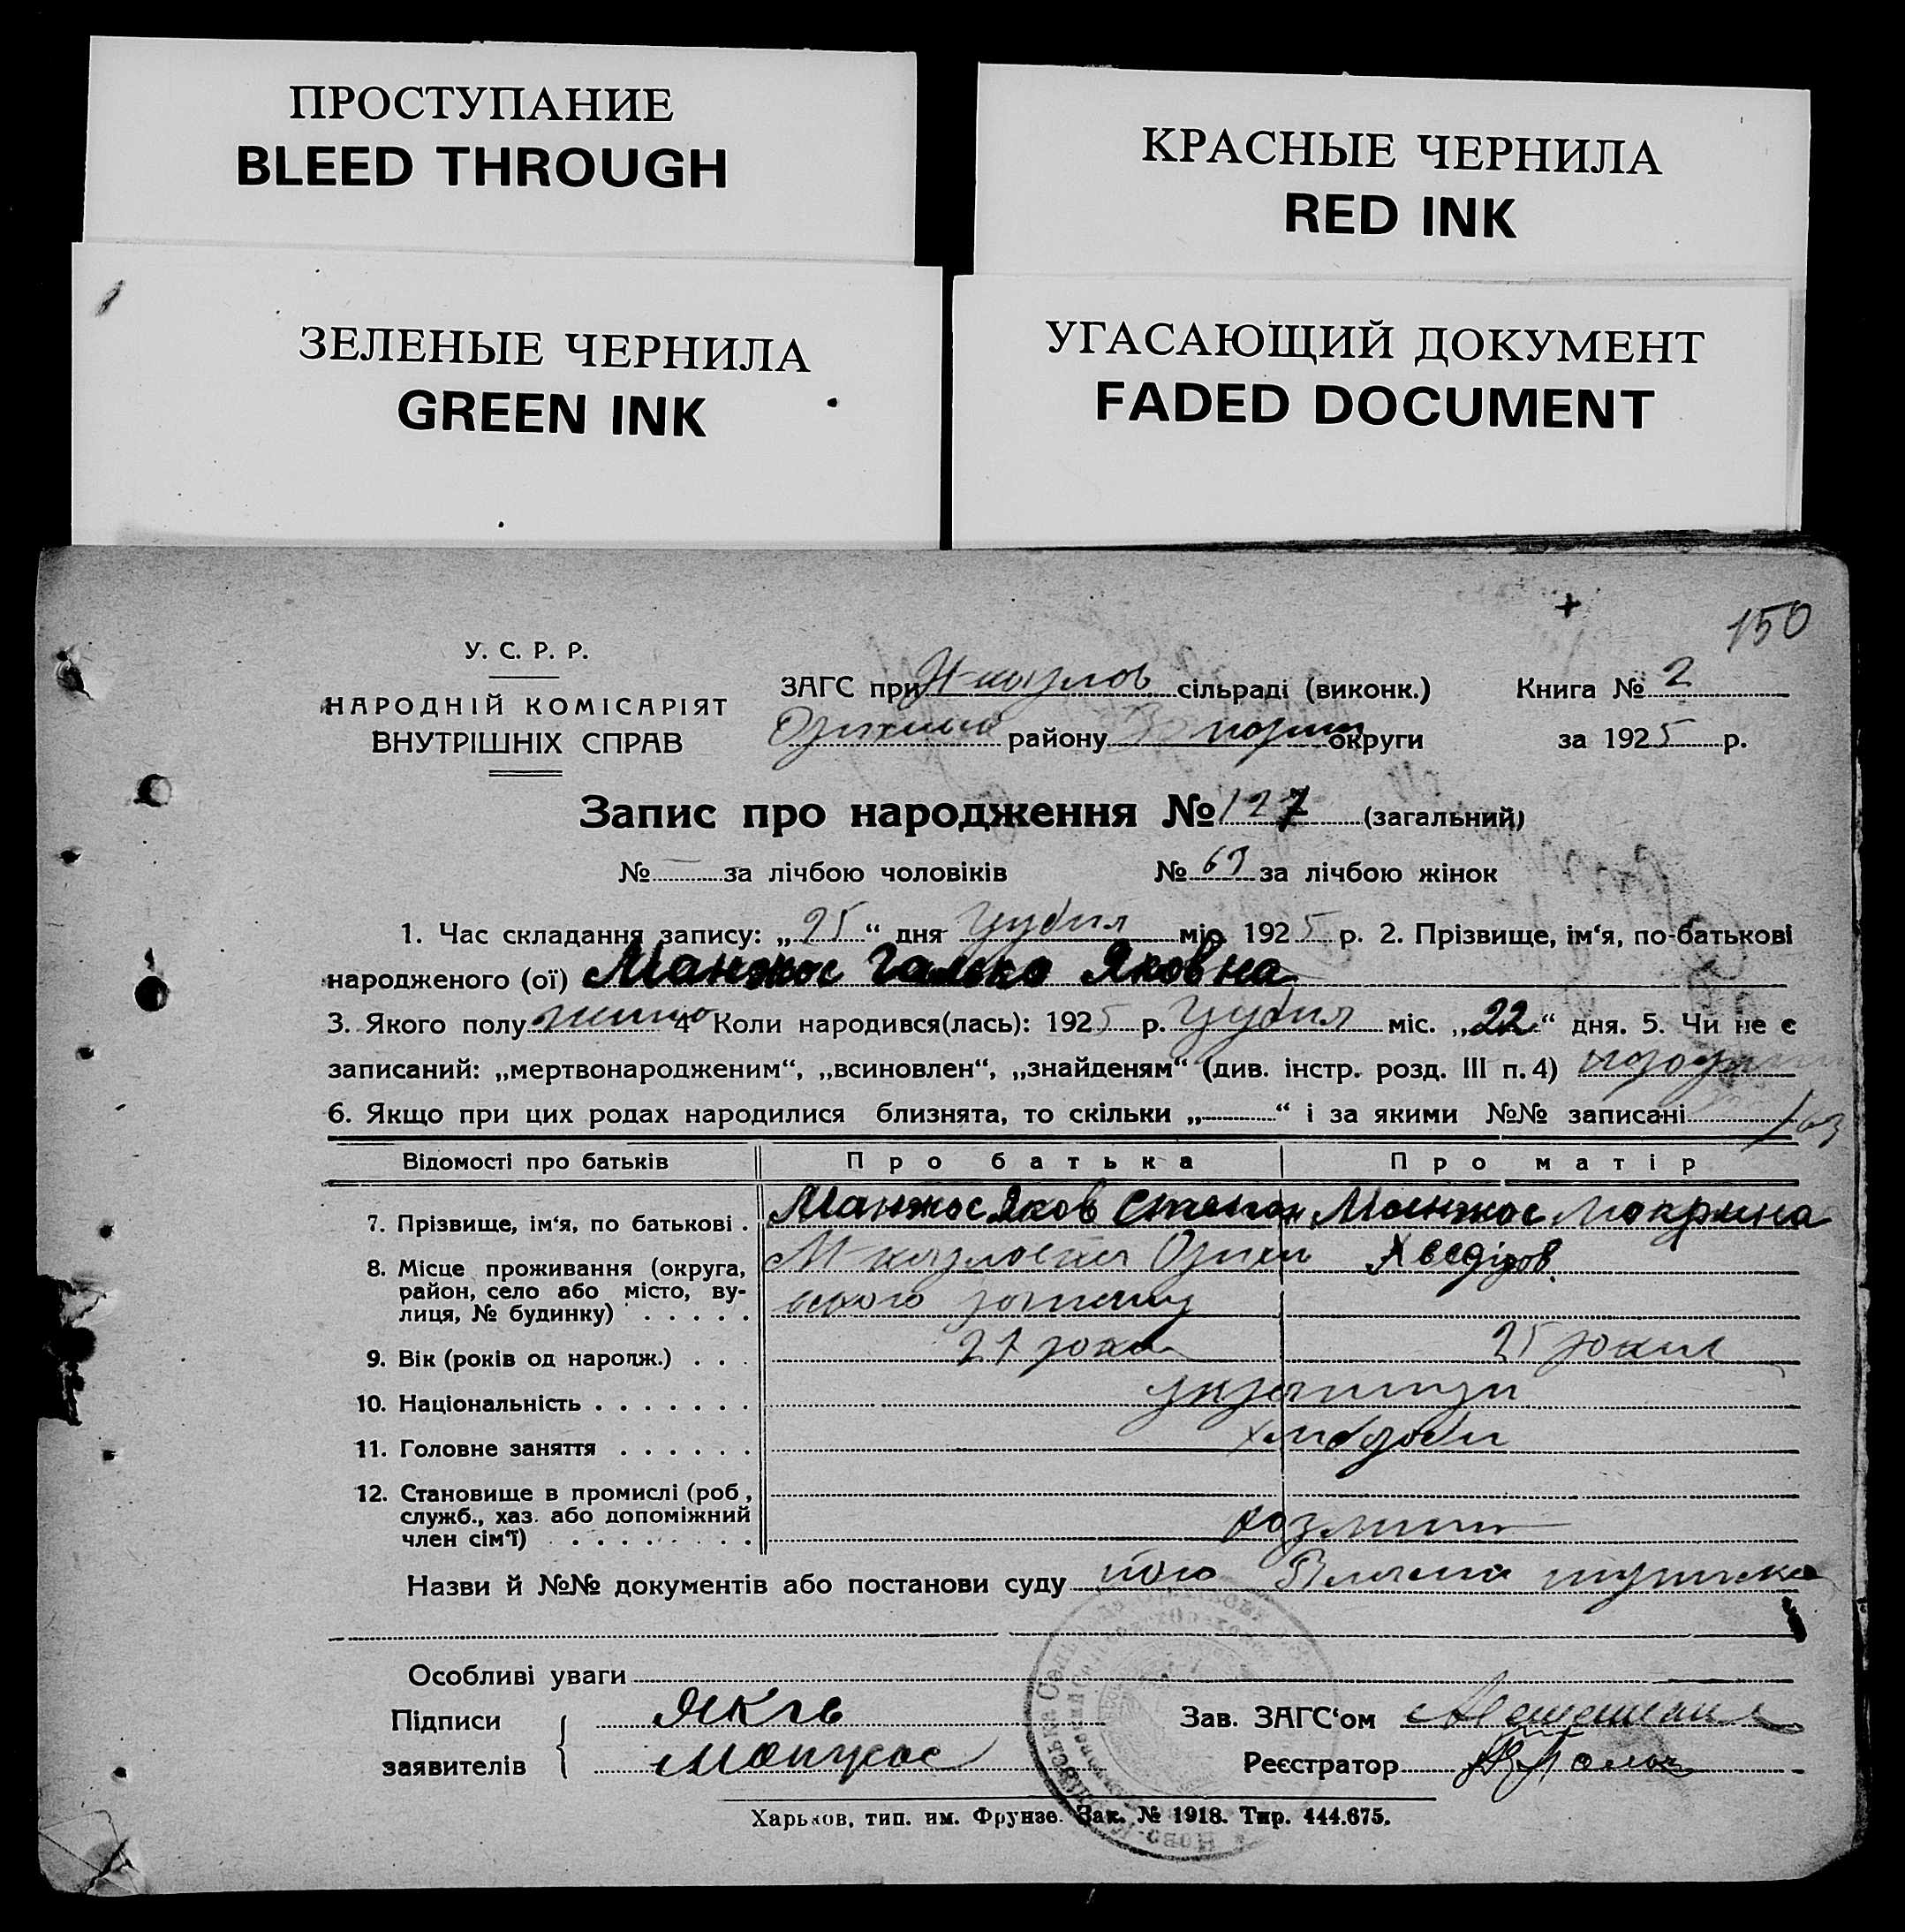 ПРОСТУПАНИЕ
BLEED THROUGH
КРАСНЫЕ ЧЕРНИЛА
RED INK
ЗЕЛЕНЫЕ ЧЕРНИЛА
GREEN INK
УГАСАЮЩИЙ ДОКУМЕНТ
FADED DOCUMENT
150
У. С. Р. Р.
НАРОДНІЙ КОМІСАРІЯТ
ВНУТРІШНІХ СПРАВ
ЗАГС при сільраді (виконк.) Книга № 2
району округи за 1925 р.
Запис про народження № 127 (загальний)
№ — за лічбою чоловіків № 63 за лічбою жінок
1. Час складання запису: „25“ дня Грудня міс. 1925 р. 2. Прізвище, ім‘я, по-батькові
народженого (ої) Манжос Галько Яковна
3. Якого полу жіно 4 Коли народився(лась): 1925 р. Грудня міс. „22“ дня. 5. Чи не є
записаний: „мертвонародженим“, „всиновлен“, „знайденям“ (див. інстр. розд. III п. 4)
6. Якщо при цих родах народилися близнята, то скільки „—“ і за якими №№ записані
Відомості про батьків Про батька Про матір
7. Прізвище, ім‘я, по батькові . Манжос Яков Степан Манжос Мокрина
8. Місце проживання (округа,
район, село або місто, ву-
лиця, № будинку) . . . . .
9. Вік (років од народж.) . . . 27 роки 25 роки
10. Національність . . . . . . . українци
11. Головне заняття . . . . . . хліброби
12. Становище в промислі (роб,
служб., хаз. або допоміжний
член сім‘ї) . . . . . . . . .
Назви й №№ документів або постанови суду
Особливі уваги
Підписи Яків Зав. ЗАГС‘ом
заявителів Манжос Реєстратор
Харьков, тип. им. Фрунзе. Зак. № 1918. Тир. 444.675.